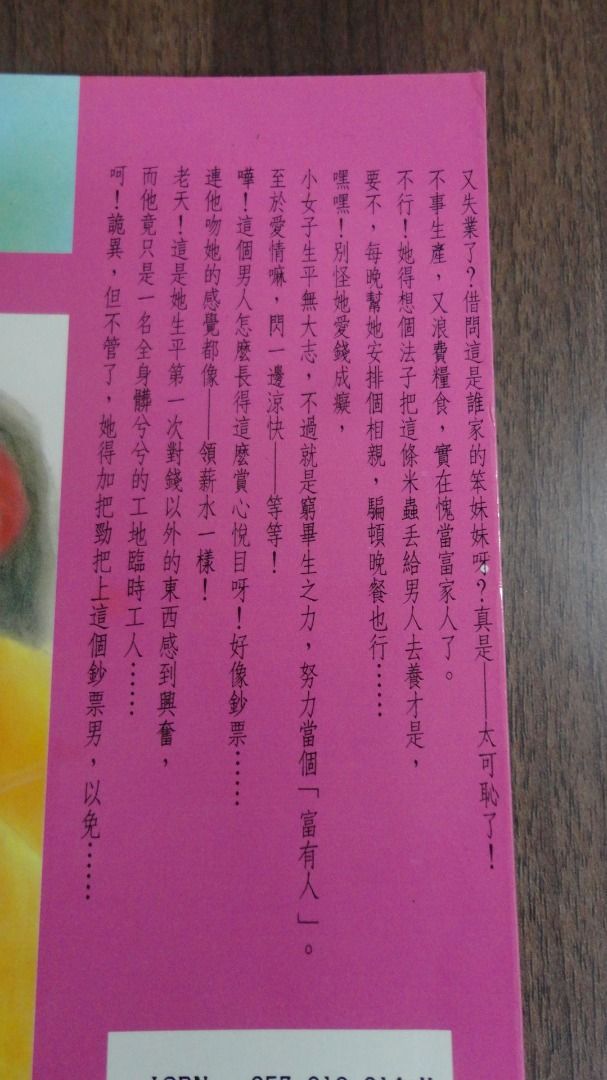 又失業了?借問這是誰家的笨妹妹呀?真是——太可恥了!
不事生產，又浪費糧食，實在愧當富家人了。
不行!她得想個法子把這條米蟲丟給男人去養才是，
要不，每晚幫她安排個相親，騙頓晚餐也行……
嘿嘿!別怪她愛錢成癡，
小女子生平無大志，不過就是窮畢生之力，努力當個「富有人」。
至於愛情嘛，閃一邊涼快——等等!
嘩!這個男人怎麼長得這麼賞心悅目呀!好像鈔票……
連他吻她的感覺都像——領薪水一樣!
老天!這是她生平第一次對錢以外的東西感到興奮，
而他竟只是一名全身髒兮兮的工地臨時工人……
呵!詭異，但不管了，她得加把勁把上這個鈔票男，以免……